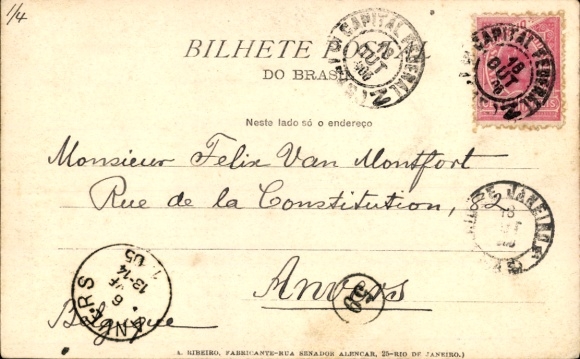 1/4
BILHETE
DO BRASIL
CAPITAL FEDERAL
18
OUT
CAPITAL FEDERAL
18
OUT
Neste lado só o endereço
Monsieur Felix Van Montfort
Rue de la Constitution, 82
RIO DE JANEIRO
18
Anvers
50
ANVERS
6
13-14
Belgique
A. RIBEIRO, FABRICANTE-RUA SENADOR ALENCAR, 25-RIO DE JANEIRO.)